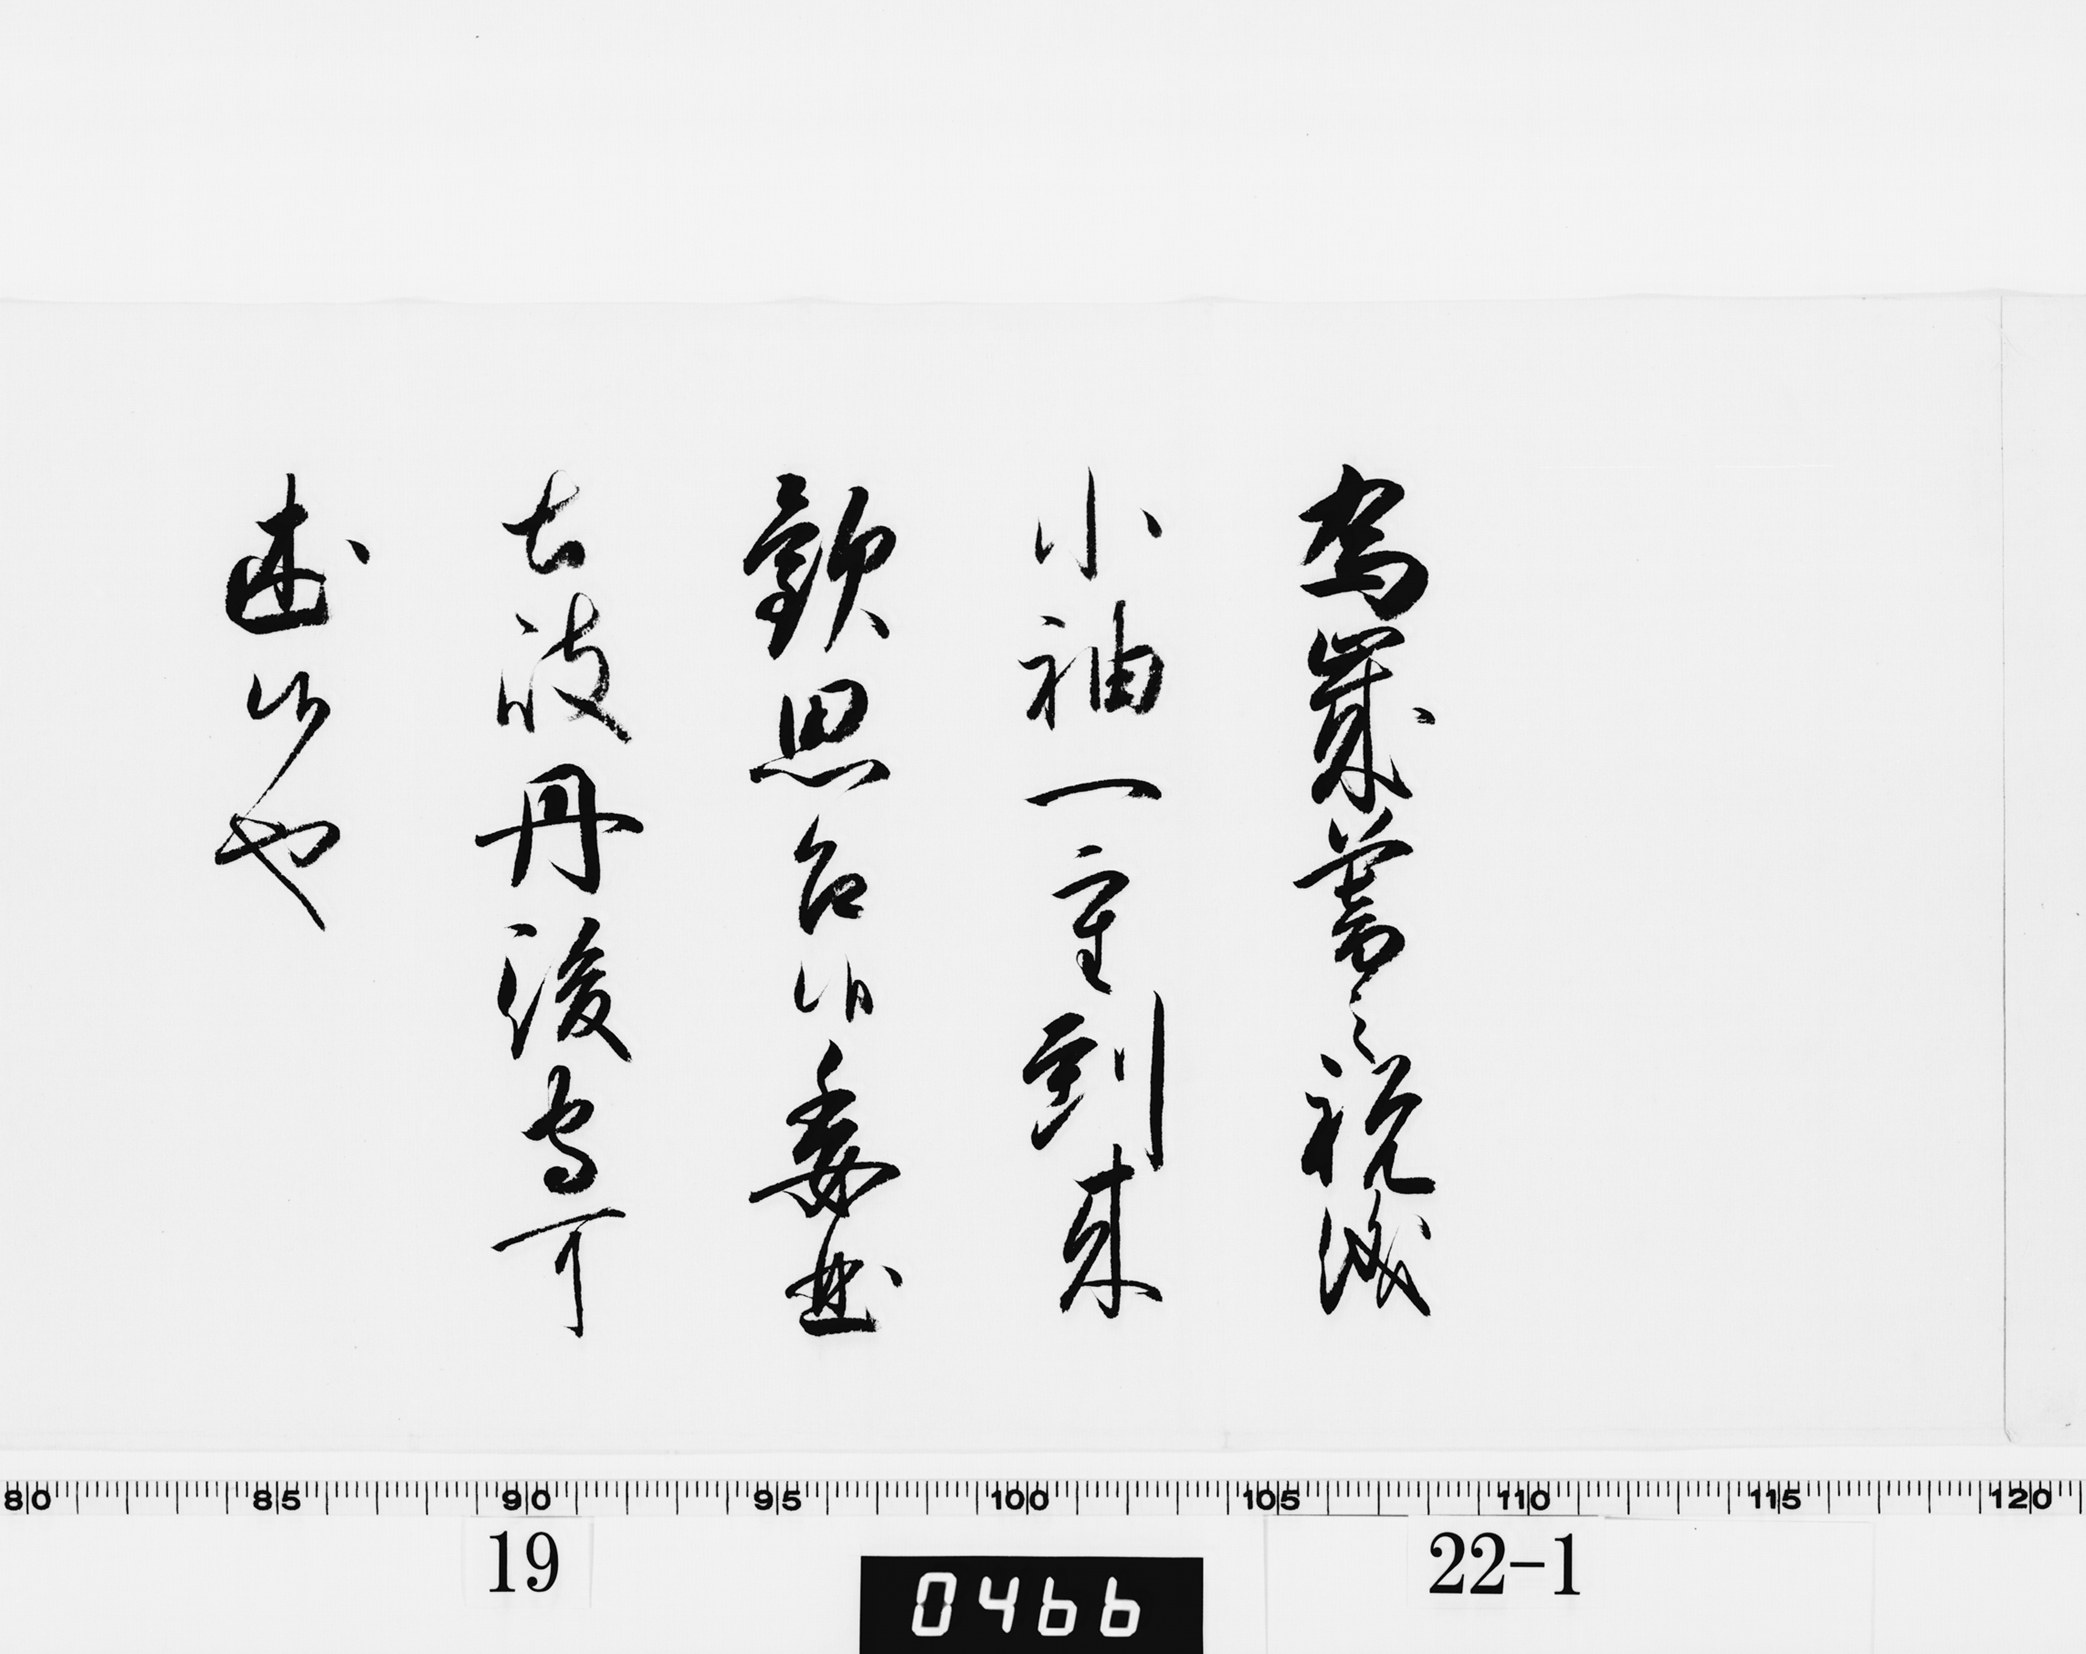 為歳暮之祝儀
小袖一重到来
歓思召候委曲
土岐丹後守可
述候也
80 85 90 95 100 105 110 115 120
19
0466
22-1